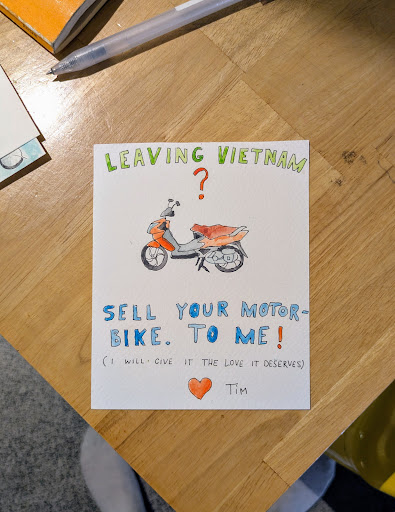 LEAVING VIETNAM
?
SELL YOUR MOTOR-
BIKE. TO ME!
(I WILL GIVE IT THE LOVE IT DESERVES)
TIM